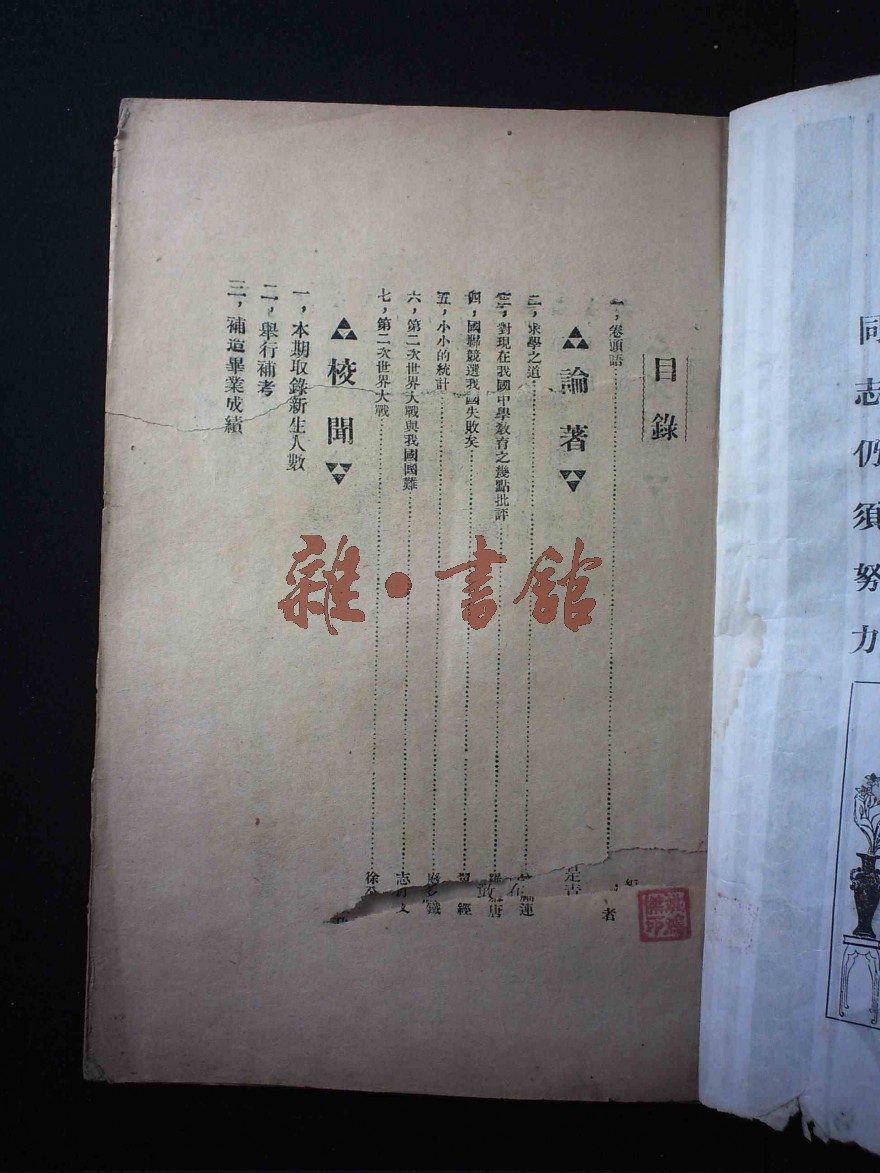 同志仍須努力
目錄
一，卷頭語
者
論著
二，求學之道
三，對現在我國中學教育之幾點批評
四，國聯競選我國失敗矣
經
五，小小的統計
六，第二次世界大戰與我國國難
七，第二次世界大戰
徐
校聞
一，本期取錄新生人數
二，舉行補考
三，補造畢業成績
雜·書館